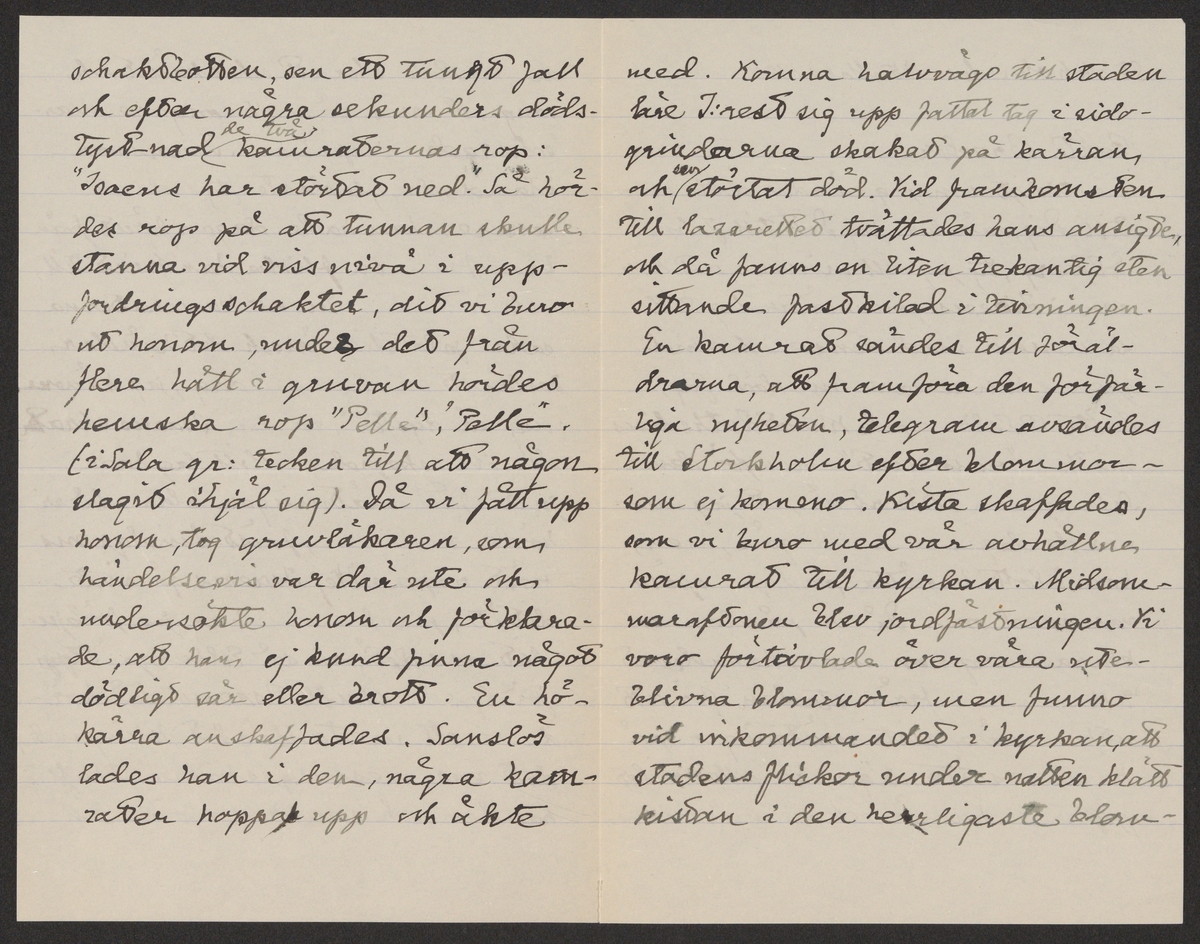 schaktbotten, sen ett tungt fall
och efter några sekunders döds-
tystnad de två kamraternas rop:
"Isaens har störtat ned." Så hör-
des rop på att tunnan skulle
stanna vid viss nivå i upp-
fordringsschaktet, dit vi buro
ut honom, under det från
flere håll i gruvan hördes
hemska rop "Pelle", "Pelle".
(i Sala gr: tecken till att någon
slagit ihjäl sig). Då vi fått upp
honom, tog gruvläkaren, som
händelsevis var där ute och
undersökte honom och förklara-
de, att han ej kund finna något
dödligt sår eller brott. En hö-
kärra anskaffades. Sanslös
lades han i den, några kam-
rater hoppat upp och åkte
med. Komna halvvägs till staden
läre I: rest sig upp fattat tag i sido-
grindarna skakat på kärran
och sen störtat död. Vid framkomsten
till lazarettet tvättades hans ansigte,
och då fanns en liten trekantig sten
sittande fastkilad i tinningen.
En kamrat sändes till föräl-
drarna, att framföra den förfär-
liga nyheten, telegram avsändes
till Stockholm efter blommor –
som ej kommo. Kista skaffades,
som vi buro med vår avhållne
kamrat till kyrkan. Midsom-
maraftonen blev jordfästningen. Vi
voro förtvivlade över våra ute-
blivna blommor, men funno
vid inkommandet i kyrkan, att
stadens flickor under natten klätt
kistan i den herrligaste blom-